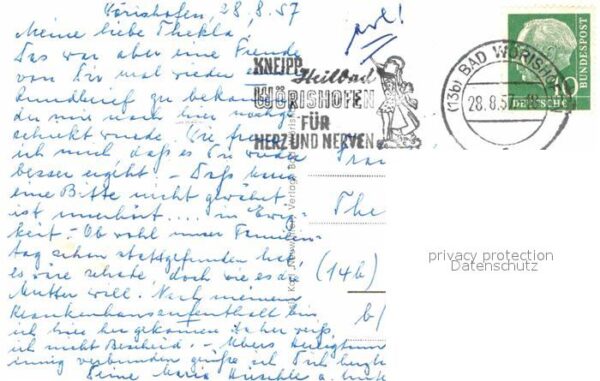 Wörishofen, 28.8.57
Meine liebe Thekla
Das war aber eine Freude
von Dir mal wieder einen
Rundbrief zu bekommen
der mir nach hier nachge-
schickt wurde. Wie freue
ich mich, daß es Dir wieder
besser ergeht – Daß kann
eine Bitte nicht gewährt
ist unerhört.... in Ewig-
keit. – Ob wohl unser Familien-
tag schon stattgefunden hat,
es wäre schade, doch wie es der
Mutter will. Nach meinem
Krankenhausaufenthalt bin
ich hier her gekommen daher weiß
ich nicht Bescheid. –
innig verbunden grüße ich Dich
Deine Maria
KNEIPP
Heilbad
WÖRISHOFEN
FÜR
HERZ UND NERVEN
(13b) BAD WÖRISHOFEN
28.8.57
DEUTSCHE
BUNDESPOST
10
Frau
The
(14b)
b/
Verlag
privacy protection
Datenschutz